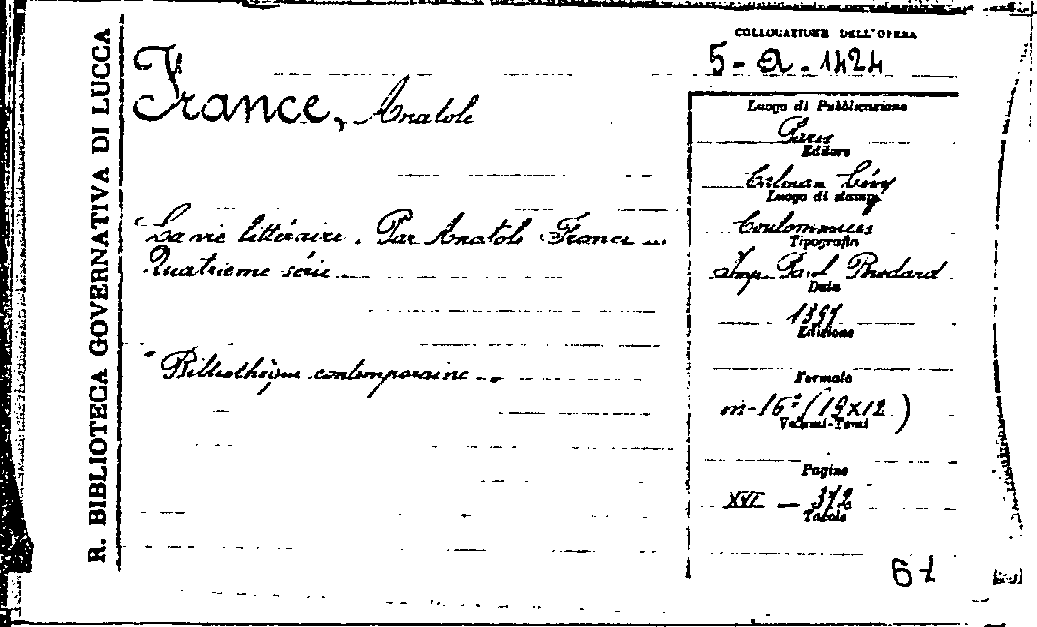 R. BIBLIOTECA GOVERNATIVA DI LUCCA
COLLOCAZIONE DELL'OPERA
5-a-1424
France, Anatole
La vie littéraire. Par Anatole France ...
Quatrième série
"Bibliothèque contemporaine"
Luogo di Pubblicazione
Paris
Editore
Calman Lévy
Luogo di stampa
Coulommiers
Tipografia
Imp. Paul Brodard
Data
Edizione
Formato
in-16° (19x12)
Volumi-Tomi
Pagine
XVI - 372
Tavole